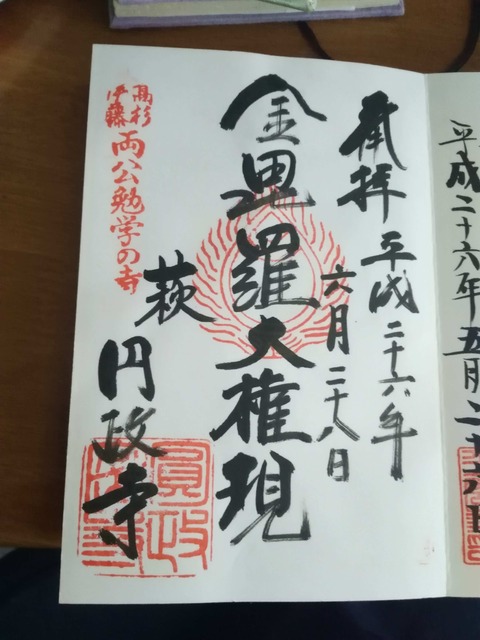 奉拝 平成二十六年
六月二十八日
金毘羅大権現
萩
円政寺
高杉
伊藤
両公勉学の寺
圓政
平成二十六年五月二十六日